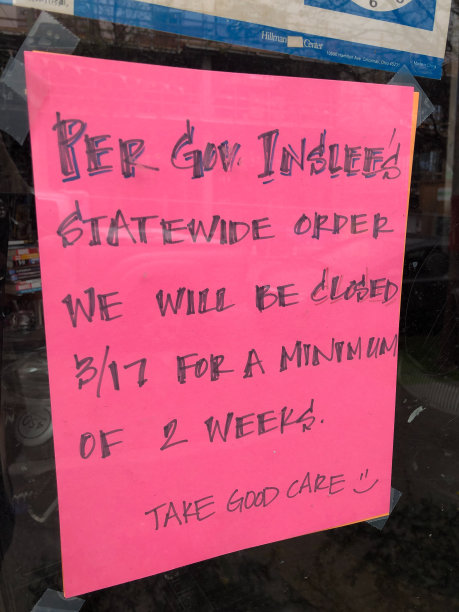 Hillman Center
PER GOV. INSLEE'S
STATEWIDE ORDER
WE WILL BE CLOSED
3/17 FOR A MINIMUM
OF 2 WEEKS.
TAKE GOOD CARE :)